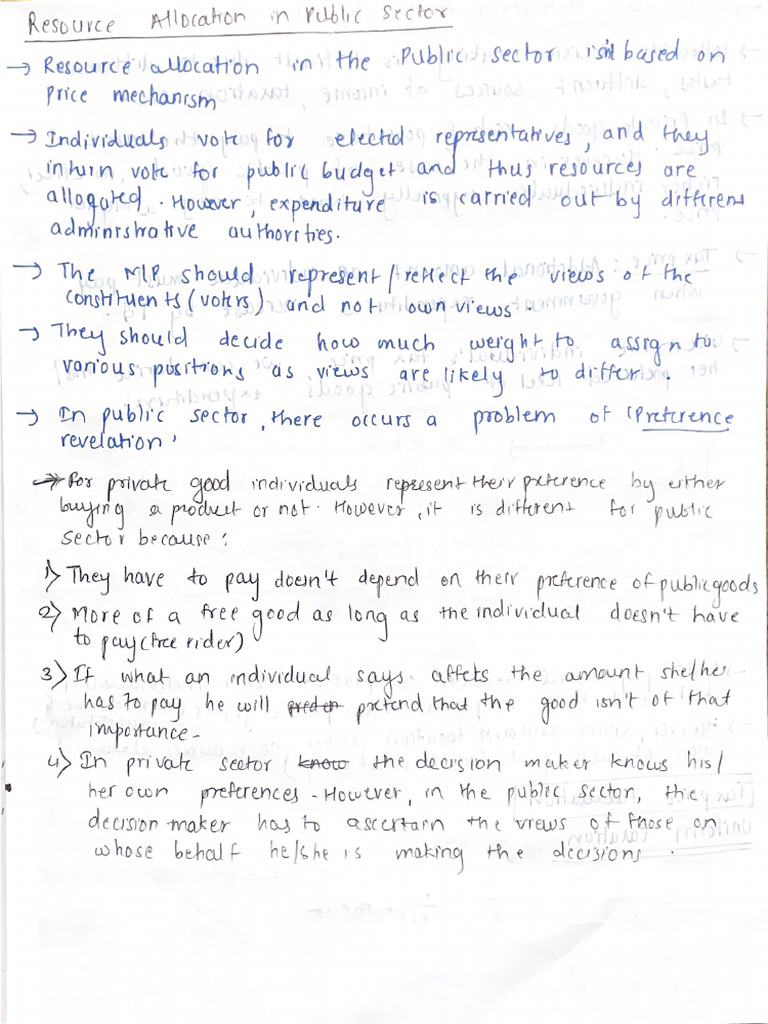 Resource Allocation in Public Sector
→ Resource allocation in the Public Sector isn't based on
price mechanism
→ Individuals vote for elected representatives, and they
inturn vote for public budget and thus resources are
allocated. However, expenditure is carried out by different
administrative authorities.
→ The MP should represent/reflect the views of the
constituents (voters) and not own views.
→ They should decide how much weight to assign to
various positions as views are likely to differ.
→ In public sector, there occurs a problem of 'Preference
revelation'
→ For private good individuals represent their preference by either
buying a product or not. However, it is different for public
sector because:
1) They have to pay doesn't depend on their preference of public goods
2) More of a free good as long as the individual doesn't have
to pay (free rider)
3) If what an individual says affets the amount she/he
has to pay he will pretend that the good isn't of that
importance.
4) In private sector know the decision maker knows his/
her own preferences. However, in the public sector, the
decision maker has to ascertain the views of those on
whose behalf he/she is making the decisions.